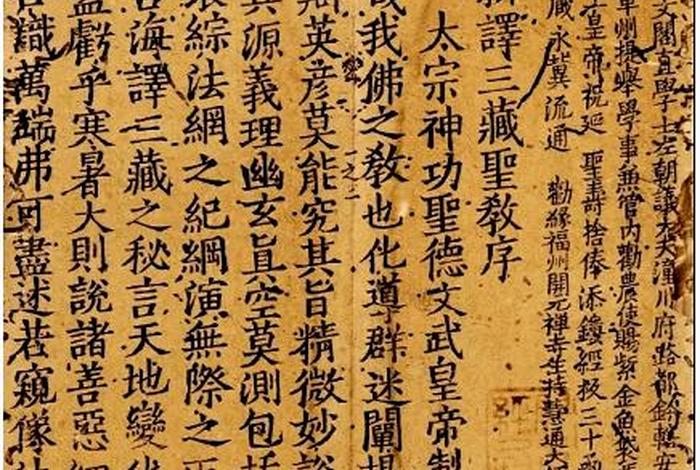 文閣直學士左朝議大夫潼川府路都鈐轄安
軍州提舉學事兼管內勸農使賜紫金魚袋
皇帝祝延 聖壽捨俸添鏤經板三十
藏永冀流通 勸緣福州開元禪寺住持慧通大
譯三藏聖教序
太宗神功聖德文武皇帝製
哉我佛之教也化導群迷闡揚
英彥莫能究其旨精微妙說
其源義理幽玄真空莫測包括
垠綜法網之紀綱演無際之正
海譯三藏之秘言天地變化
盈虧乎寒暑大則說諸善惡
識萬端弗可盡述若窺像